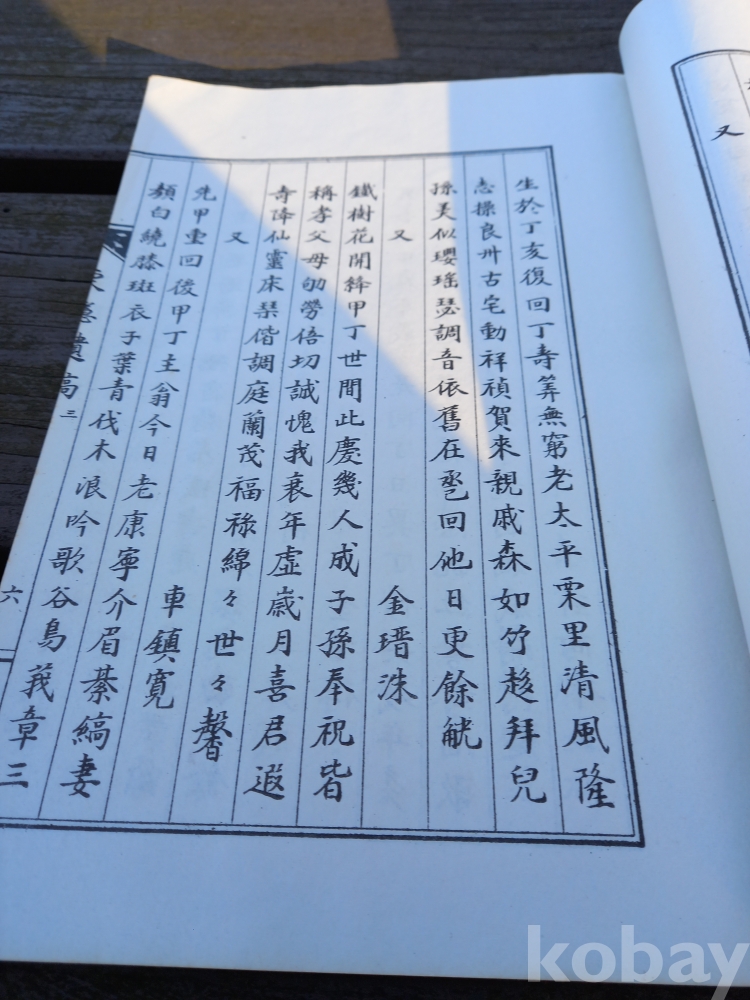 又
生於丁亥復回丁壽筭無窮老太平栗里清風隆
志操良卅古宅動祥禎賀來親戚森如竹趍拜兒
孫美似瓔瑤瑟調音依舊在卺回他日更餘觥
又 金瑨洙
鐵樹花開絳甲丁世間此慶幾人成子孫奉祝皆
稱孝父母劬勞倍切誠愧我衰年虛歲月喜君遐
寿降仙靈床琹偕調庭蘭茂福祿綿々世々馨
又 車鎮寬
先甲重回後甲丁主翁今日老康寧介眉綦縞妻
頒白繞膝斑衣子葉青伐木浪吟歌谷鳥莪章三
隱遺稿 三 六
kobay